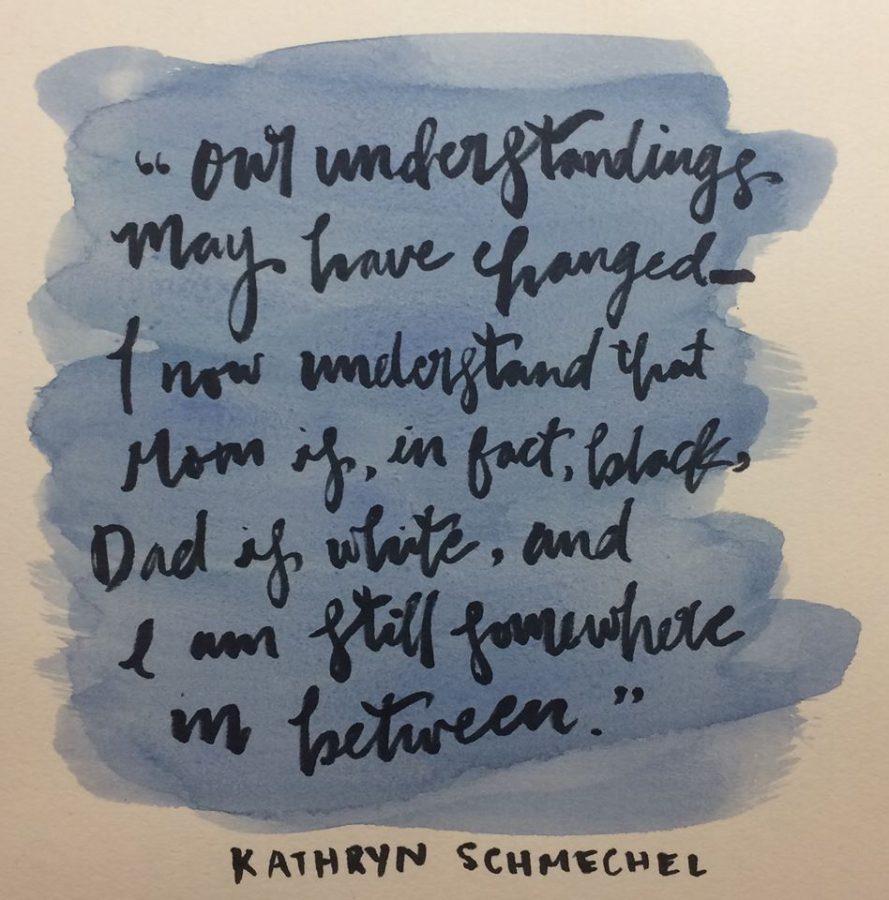 “Our understandings
may have changed—
I now understand that
Mom is, in fact, black,
Dad is white, and
I am still somewhere
in between.”
KATHRYN SCHMECHEL